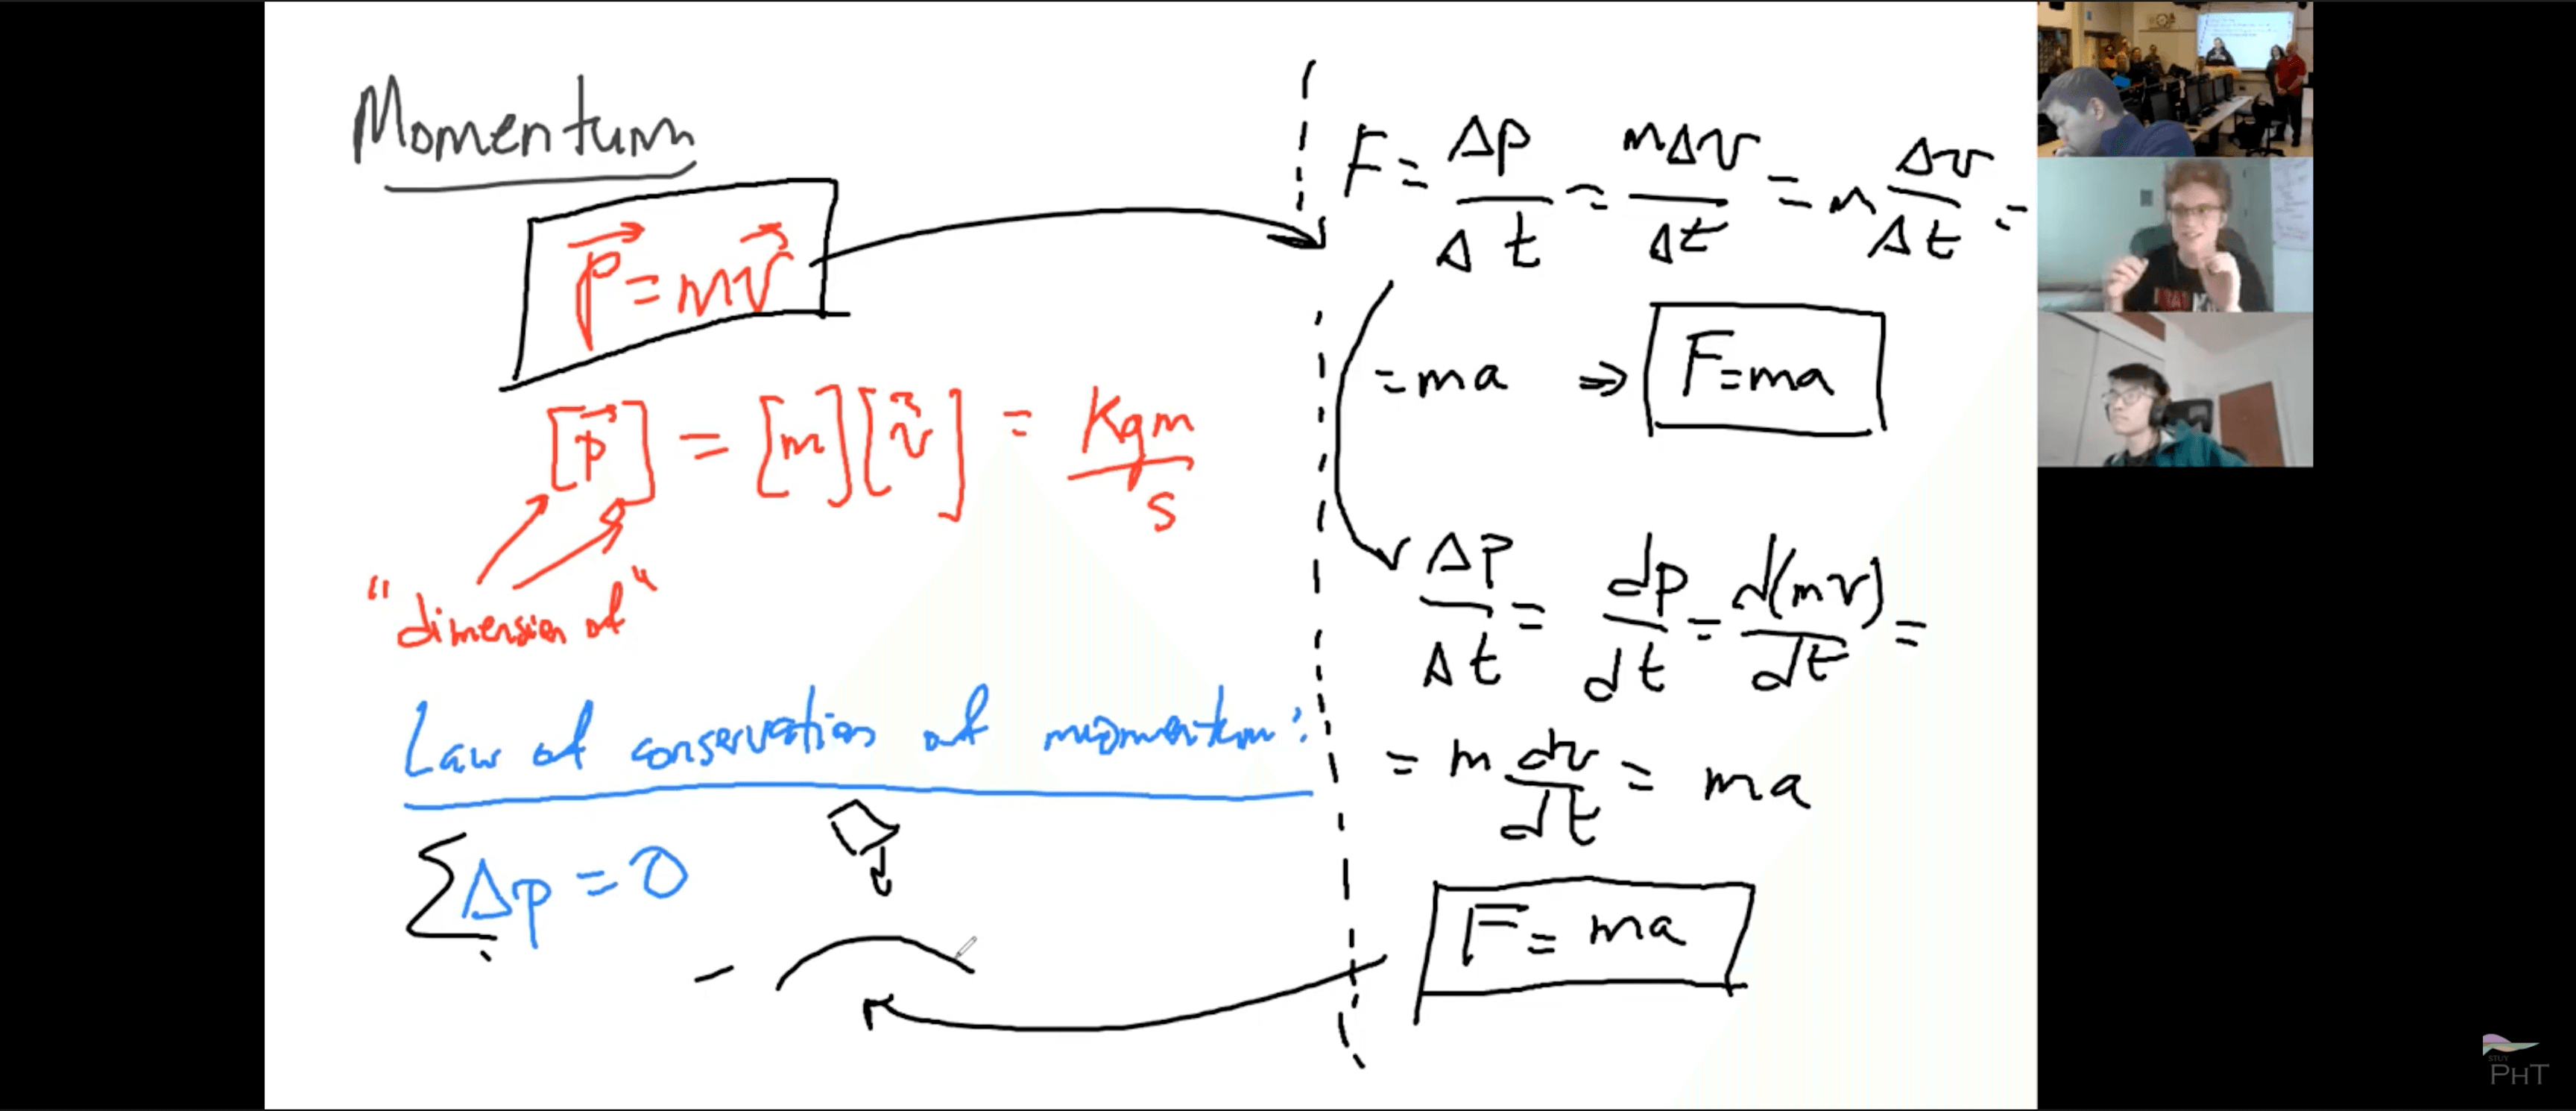 Momentum
p⃗ = mv⃗
[p⃗] = [m][v⃗] = Kgm/s
"dimension of"
Law of conservation of momentum:
∑Δp = 0
F = Δp/Δt = mΔv/Δt = m Δv/Δt =
= ma ⇒ F=ma
Δp/Δt = dp/dt = d(mv)/dt =
= m dv/dt = ma
F = ma
STUY
PHT